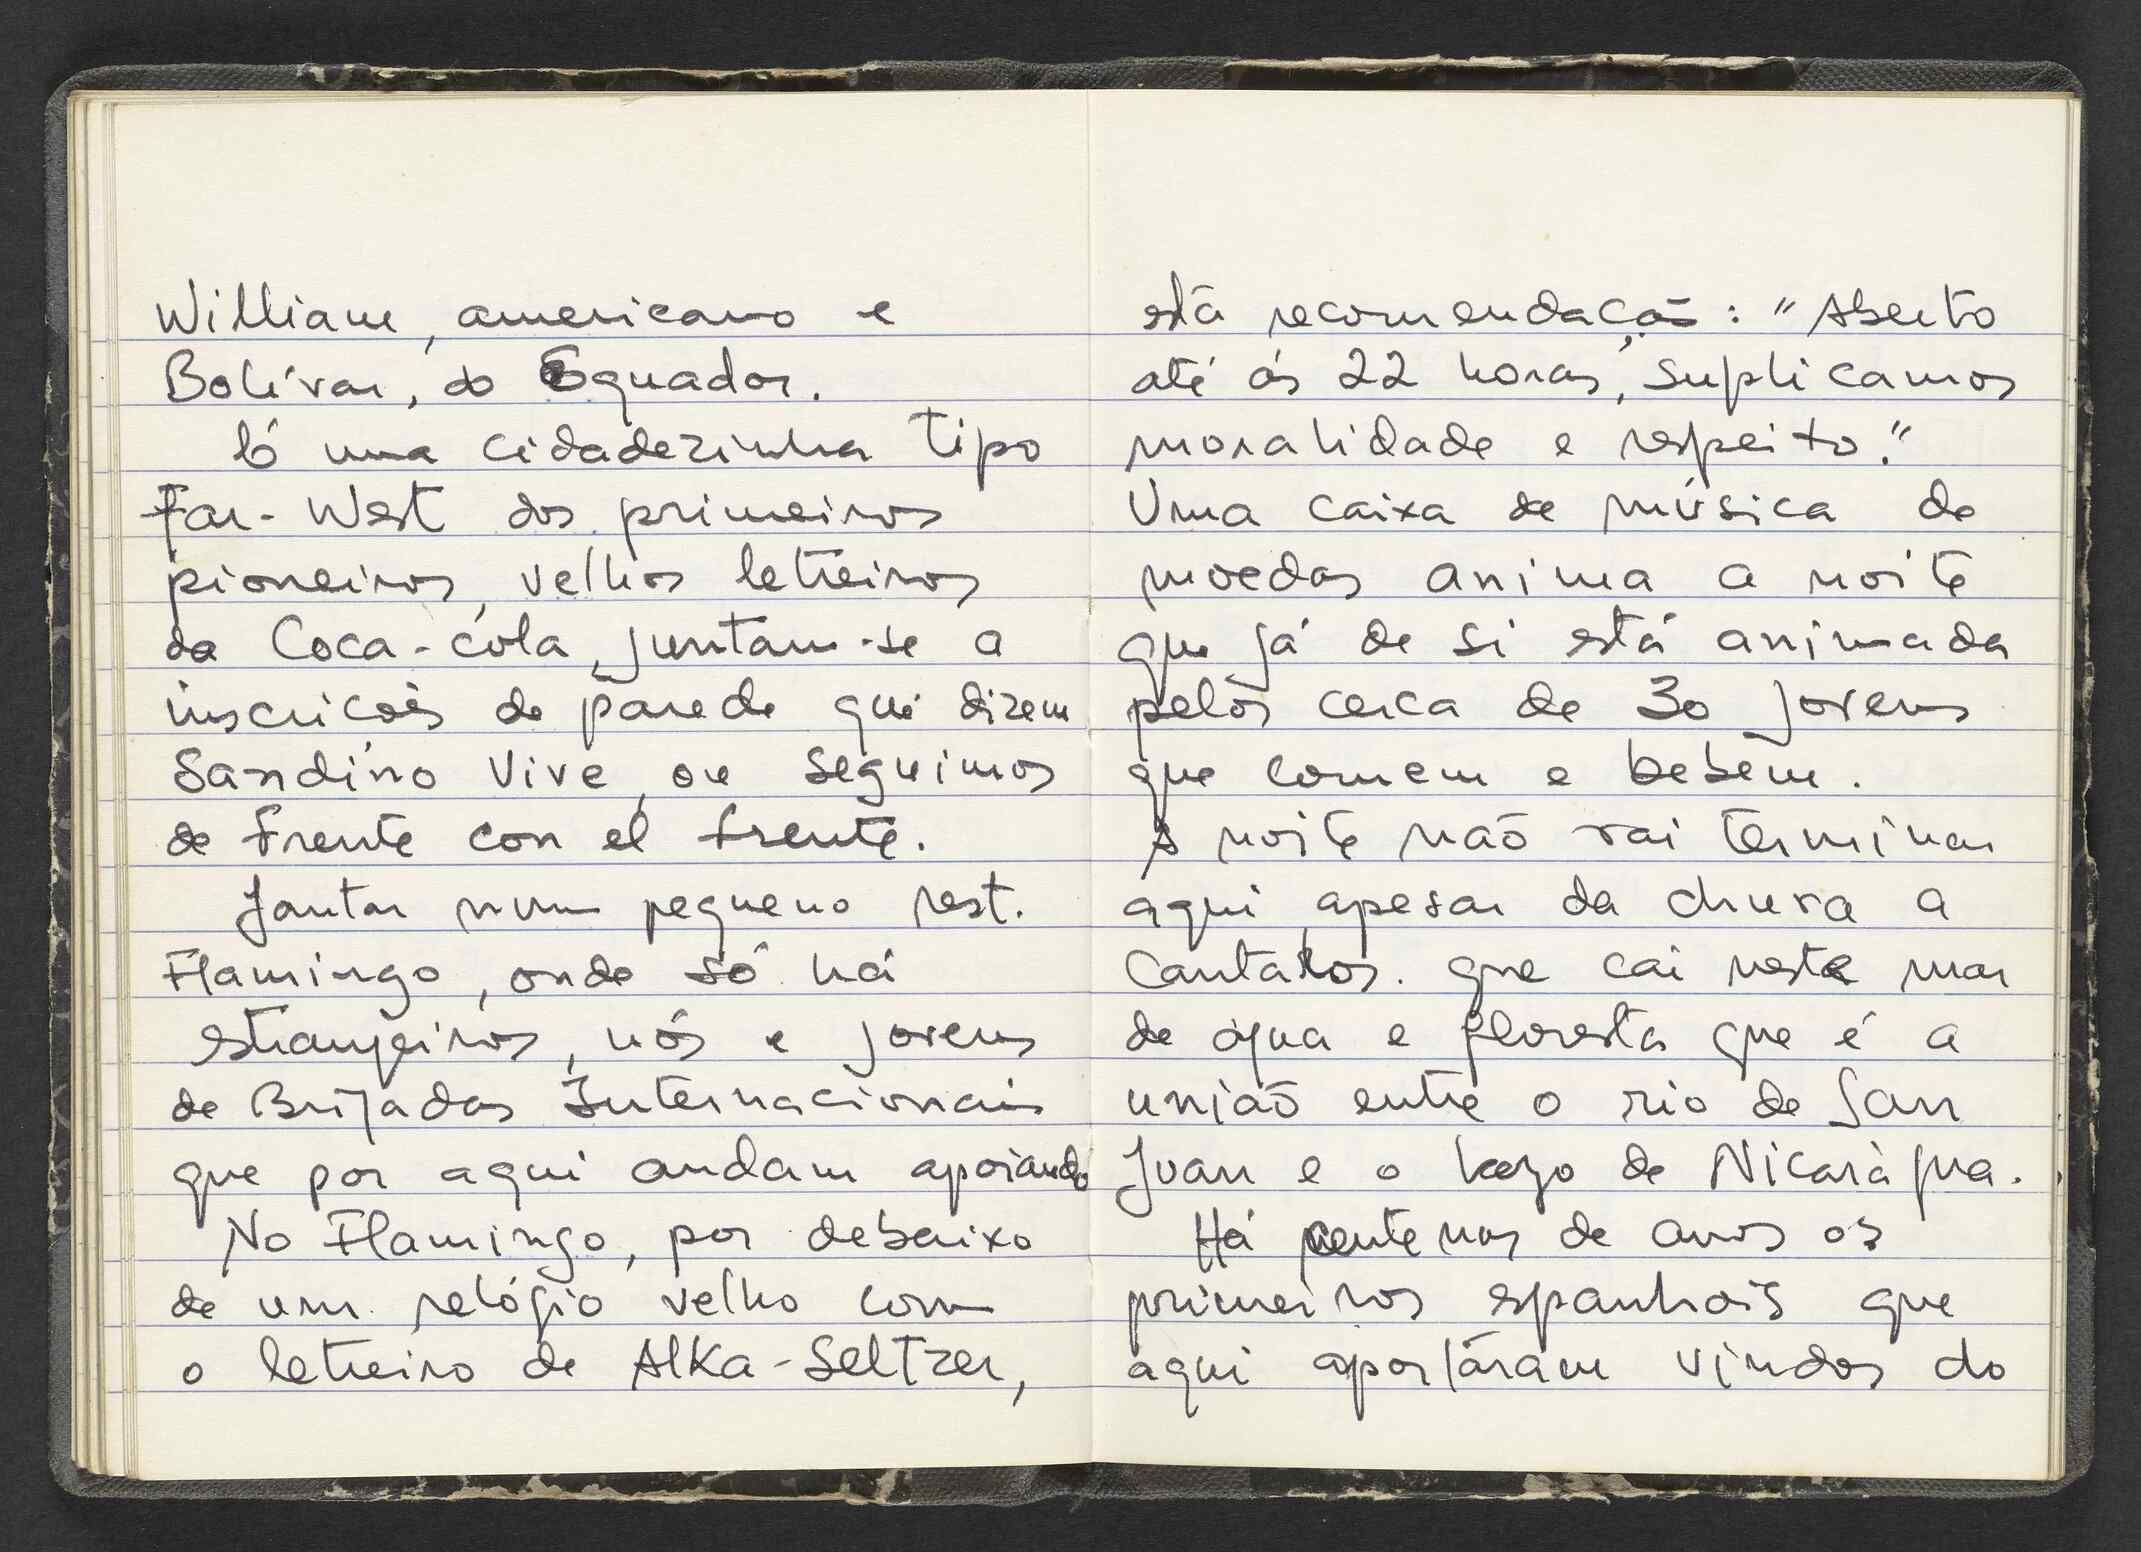 William, americano e
Bolívar, do Equador.
É uma cidadezinha tipo
Far-West dos primeiros
pioneiros, velhos letreiros
da Coca-cola, juntam-se a
inscrições de parede que dizem
Sandino Vive, ou seguimos
de frente con el frente.
Jantar num pequeno rest.
Flamingo, onde só há
estrangeiros, nós e jovens
de Brigadas Internacionais
que por aqui andam apoiando
No Flamingo, por debaixo
de um relógio velho com
o letreiro de Alka-Seltzer,
está recomendação: "Aberto
até ás 22 horas, suplicamos
moralidade e respeito."
Uma caixa de música de
moedas anima a noite
que já de si está animada
pelos cerca de 30 jovens
que comem e bebem.
A noite não vai terminar
aqui apesar da chuva a
cantaros. que cai neste mar
de água e floresta que é a
união entre o rio de San
Juan e o lago de Nicarágua.
Há centenas de anos os
primeiros espanhois que
aqui aportáram vindos do